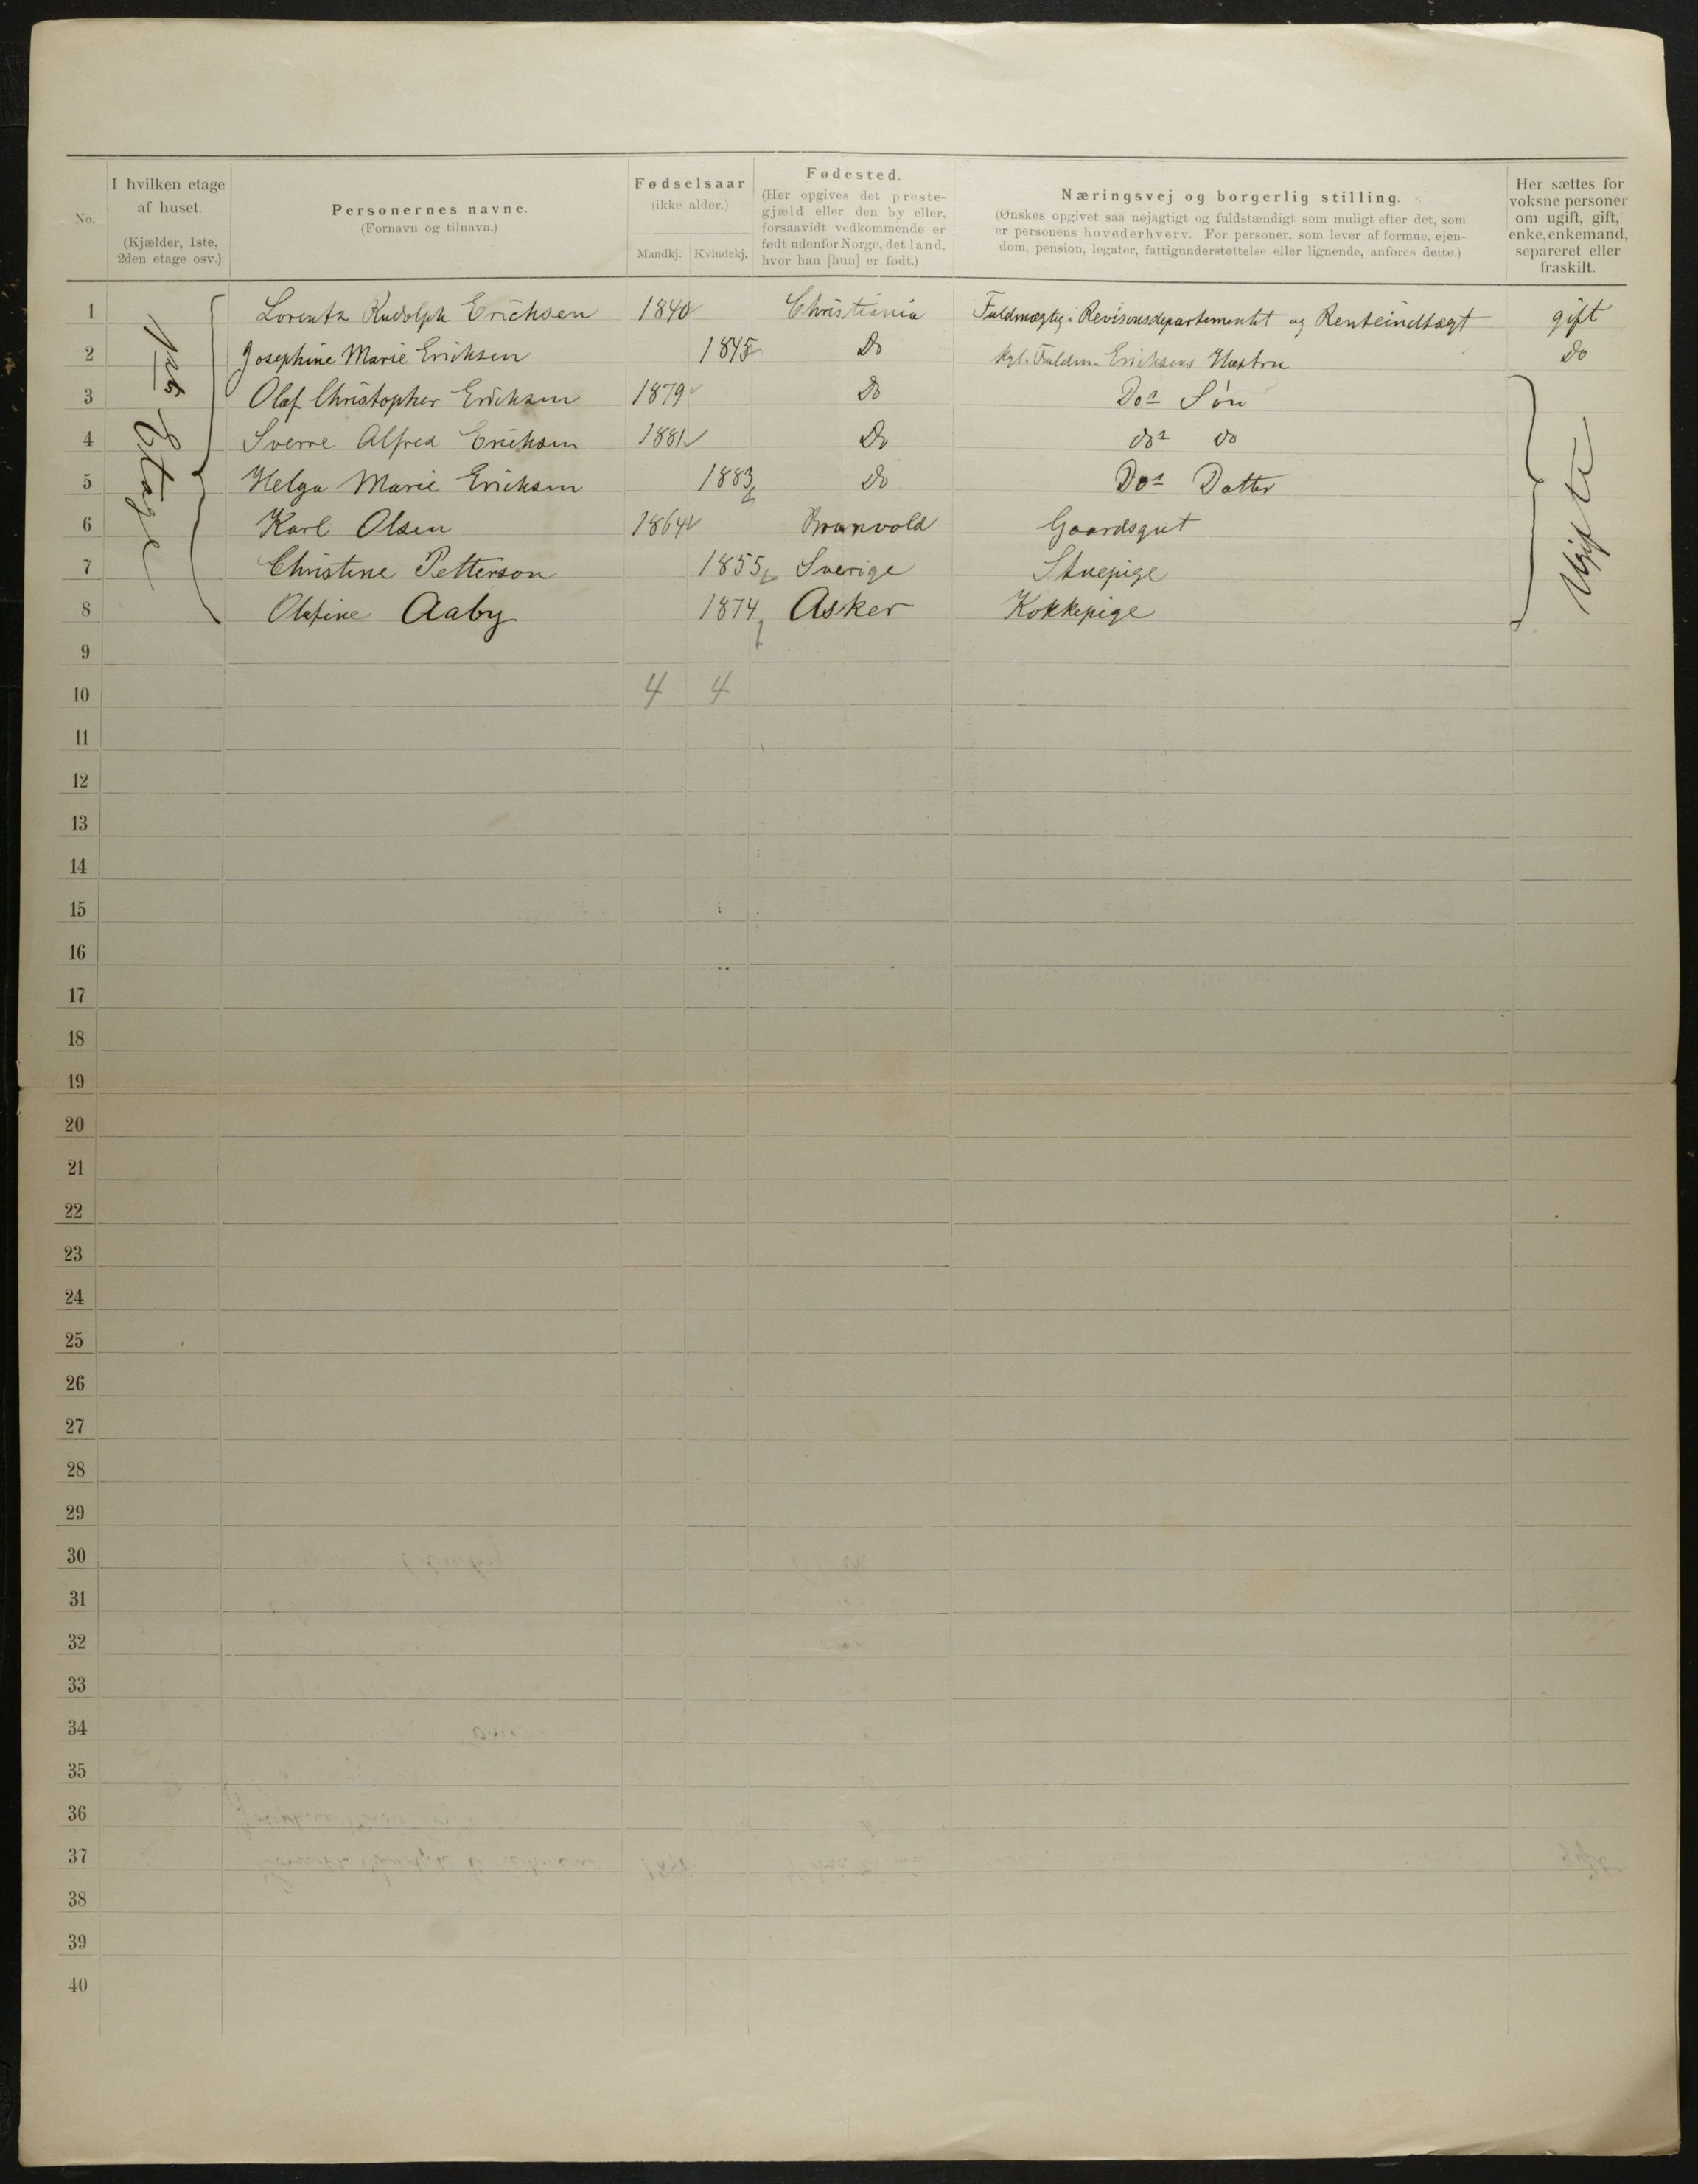 No.
I hvilken etage af huset. (Kjælder, 1ste, 2den etage osv.)
Personernes navne. (Fornavn og tilnavn.)
Fødselsaar (ikke alder.) Mandkj. Kvindekj.
Fødested. (Her opgives det prestegjæld eller den by eller, forsaavidt vedkommende er født udenfor Norge, det land, hvor han [hun] er født.)
Næringsvej og borgerlig stilling. (Ønskes opgivet saa nøjagtigt og fuldstændigt som muligt efter det, som er personens hovederhverv. For personer, som lever af formue, ejendom, pension, legater, fattigunderstøttelse eller lignende, anføres dette.)
Her sættes for voksne personer om ugift, gift, enke, enkemand, separeret eller fraskilt.
1ste Etage
1 Lorentz Rudolph Erichsen 1840 Christiania Fuldmægtig i Revisionsdepartementet og Renteindtægt gift
2 Josephine Marie Erichsen 1845 Do Kgl. Fuldm. Erichsens Hustru Do
3 Olaf Christopher Erichsen 1879 Do Dos Søn
4 Sverre Alfred Erichsen 1881 Do dos do
5 Helga Marie Erichsen 1883 Do Dos Datter
6 Karl Olsen 1864 Branvold Gaardsgut
7 Christine Petterson 1855 Sverige Stuepige
8 Olafine Aaby 1874 Asker Kokkepige
Ugifte
9
10 4 4
11
12
13
14
15
16
17
18
19
20
21
22
23
24
25
26
27
28
29
30
31
32
33
34
35
36
37
38
39
40